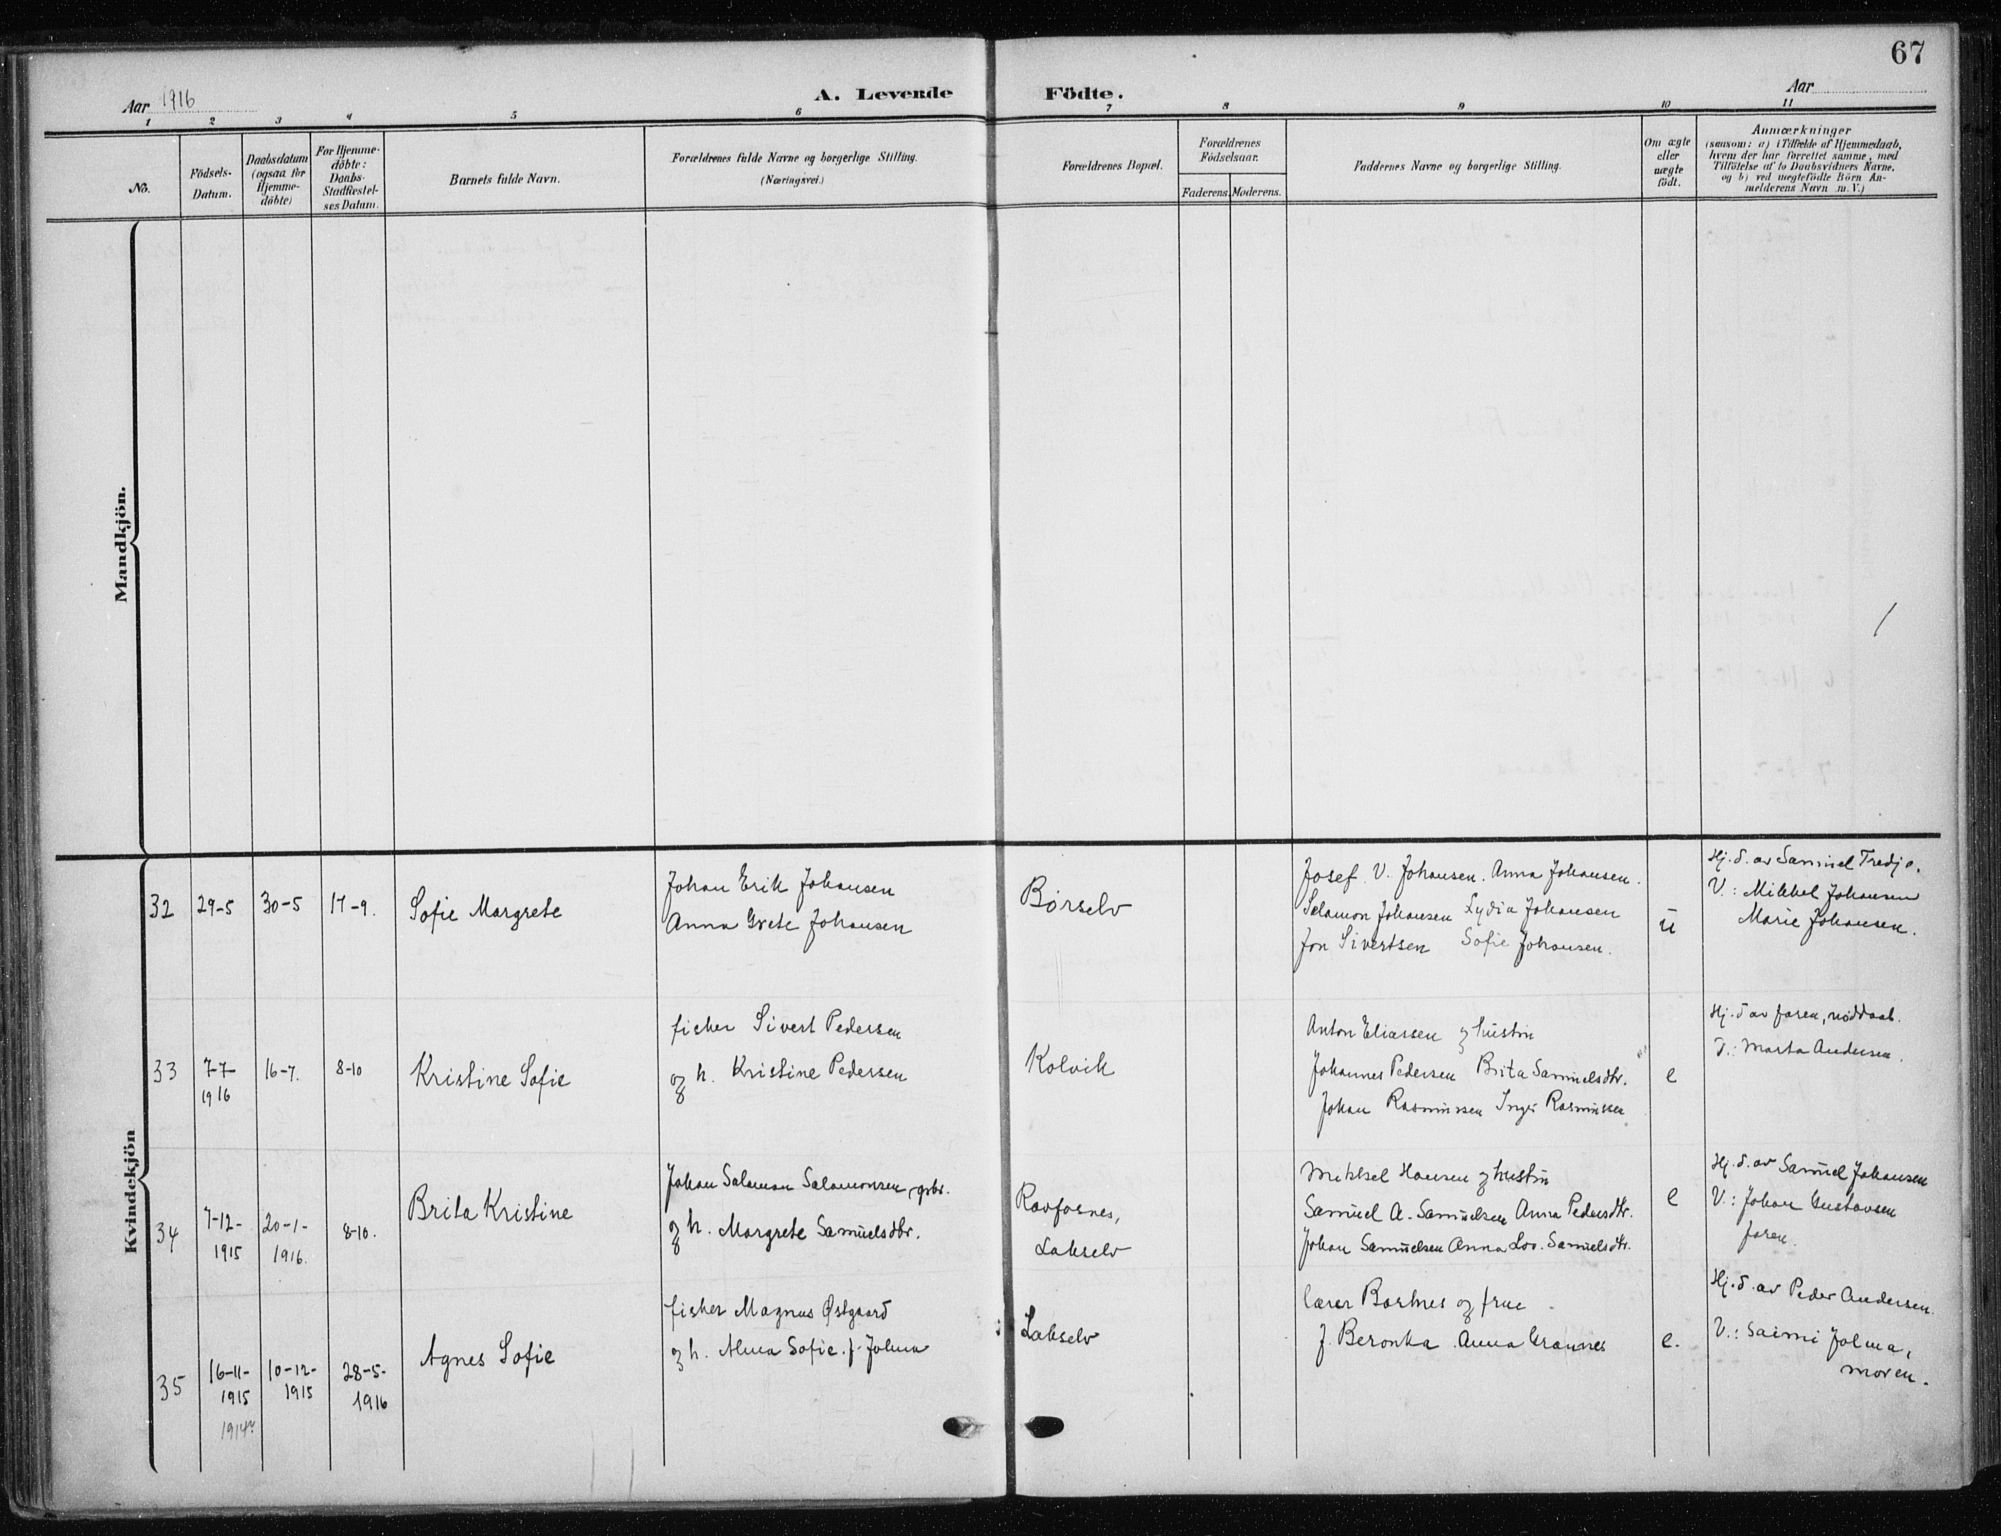 67
Aar 1916
A. Levende Födte.
Aar
1 2 3 4 5 6 7 8 9 10 11
No.
Födsels-
Datum.
Daabsdatum
(ogsaa for
Hjemme-
döbte)
For Hjemme-
döbte:
Daabs-
Stadfæstel-
ses Datum.
Barnets fulde Navn.
Forældrenes fulde Navne og borgerlige Stilling.
(Næringsvei.)
Forældrenes Bopæl.
Forældrenes
Födselsaar.
Faderens. Moderens.
Faddernes Navne og borgerlige Stilling.
Om ægte
eller
uægte
födt.
Anmærkninger
(saasom: a) i Tilfælde af Hjemmedaab,
hvem der har forrettet samme, med
Tilföielse af to Daabsvidners Navne,
og b) ved uægtefödte Börn An-
melderens Navn m. V.)
Mandkjön.
Kvindekjön
32 29-5 30-5 17-9. Sofie Margrete
Johan Erik Johansen
Anna Grete Johansen
Børselv
Josef V. Johansen. Anna Johansen.
Salamon Johansen Lydia Johansen
Jon Sivertsen Sofie Johansen.
u
Hj. d. av Samuel Tredje.
V: Mikkel Johansen
Marie Johansen.
33 7-7-
1916
16-7. 8-10 Kristine Sofie
fisker Sivert Pedersen
og h. Kristine Pedersen
Kolvik
Anton Eliassen og hustru
Johannes Pedersen Brita Samuelsdtr.
Johan Rasmussen Inger Rasmussen
e
Hj. d av faren, nøddaab.
V.: Marta Andersen.
34 7-12-
1915
20-1-
1916.
8-10. Brita Kristine
Johan Salamon Salamonsen, grbr.
og h. Margrete Samuelsdtr.
Lakselv
Mikkel Hansen og hustru
Samuel A. Samuelsen Anna Pedersdtr.
Johan Samuelsen Anna Lov. Samuelsdtr.
e
Hj. d. av Samuel Johansen
V.: Johan Gustavsen
faren.
35 16-11-
1915
1914?
10-12-
1915
28-5-
1916
Agnes Sofie
fisker Magnus Østgaard
og h. Alma Sofie f. Jolma
Lakselv
lærer og frue
J. Beronka Anna Grønnes
e.
Hj. d. av Peder Andersen.
V.: Saimi Jolma,
moren.